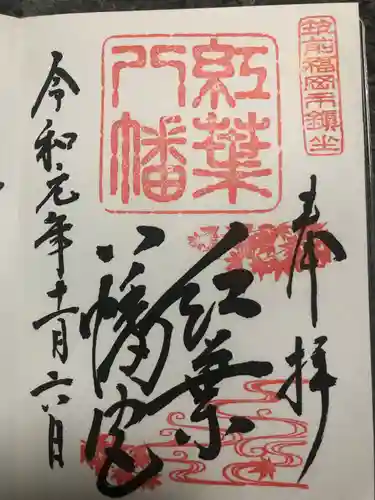 筑前福岡市鎮坐
奉拝
紅葉
八幡
紅葉
八幡宮
令和元年十一月二六日